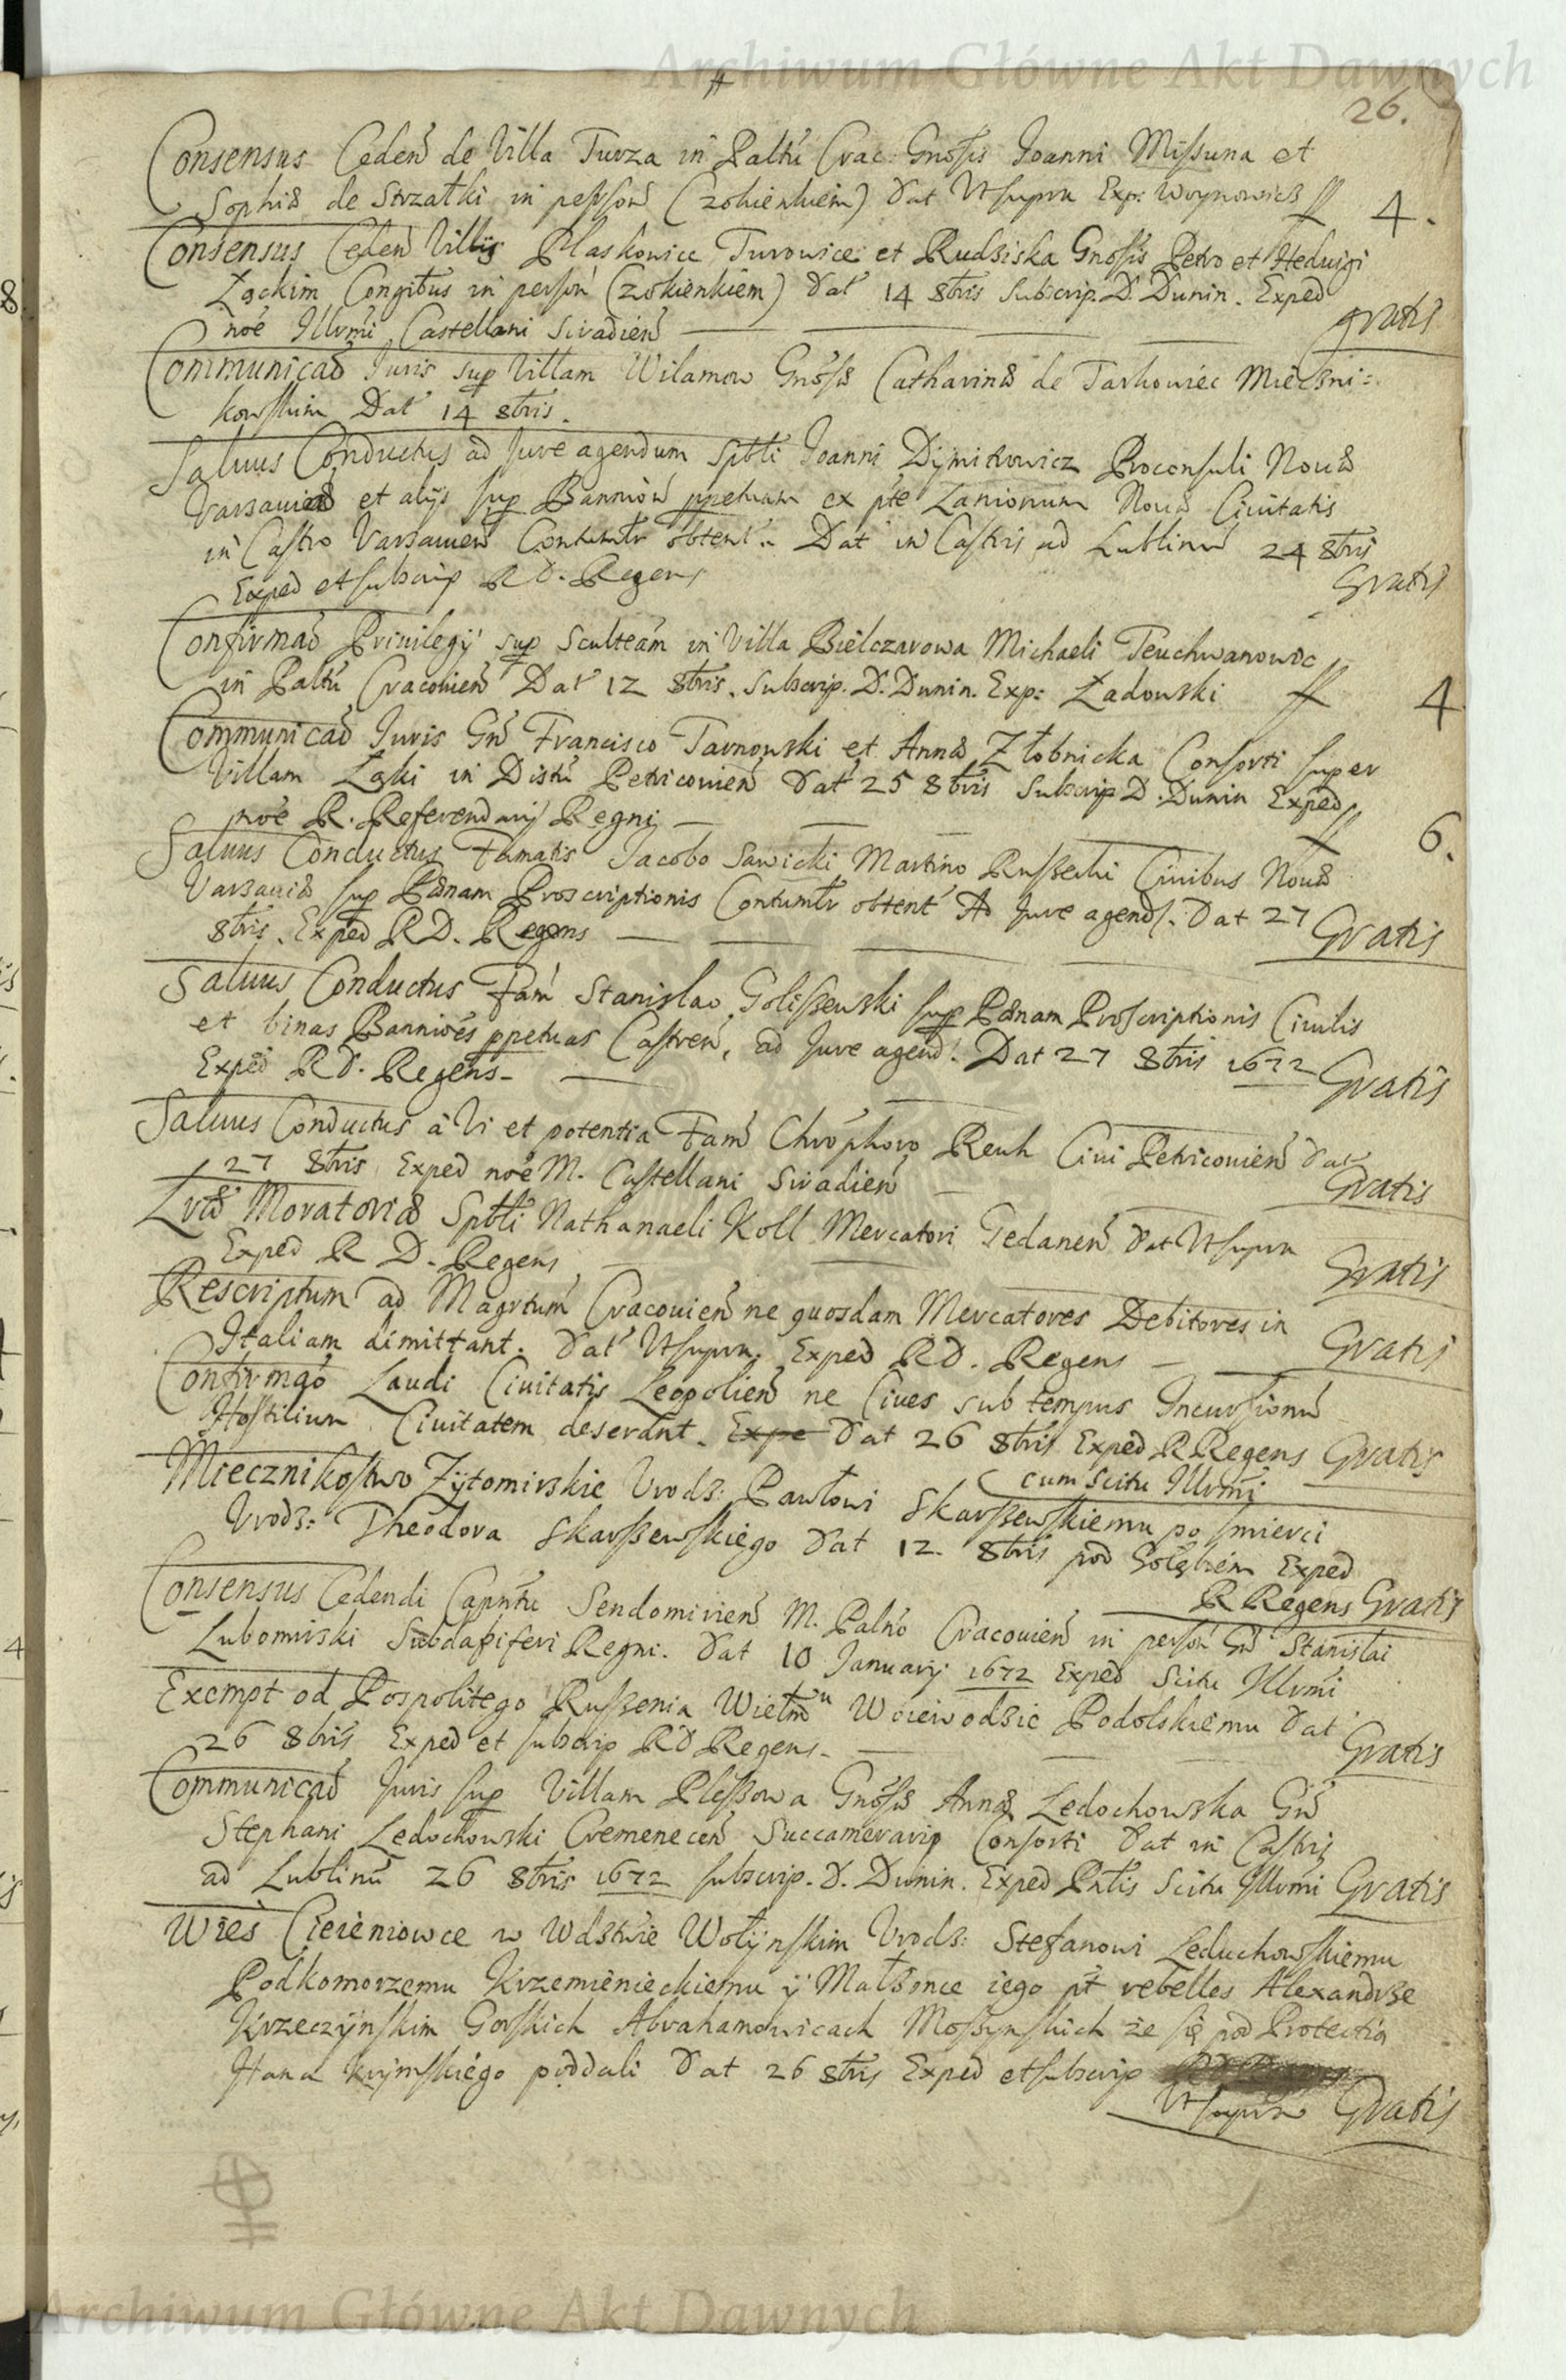 Archiwum Główne Akt Dawnych
26.
Consensus Ceden̄ de Villa Turza in Paltū Crac: Gnosis Joanni Missuna et
Sophiæ de Strzałki in person̄ (zokienkiem) Dat Utsupra Exp: Woynowicz ff 4.
Consensus Ceden̄ Villis Plaskowice Turowice et Rudziska Gnosis Petro et Heduigi
Łąckim Congibus in person̄ (zokienkiem) Dat 14 8bris Subscrip. D. Dunin. Exped
noē Illrmi Castellani Siradien̄ gratis
Communicaō Juris sup Villam Wilamow Gnosæ Catharinæ de Tarkowiec Mieczni=
kowskim Dat 14 8bris.
Saluus Conductus ad Jure agendum Sptli Joanni Dymitrowicz Proconsuli Nouæ
Varsauiæ et alijs sup Bannioē ppetuam ex pte Lanionum Nouæ Ciuitatis
in Castro Varsauien̄ Contumtr obtent. Dat in Castris ad Lublinū 24 8bris
Exped et subscrip R D. Regens Gratis
Confirmaō Priuilegij sup Sculteām in Villa Bielczarowa Michaeli Teuchwanowic
in Paltū Cracouien̄ Dat 12 8bris. Subscrip. D. Dunin. Exp: Ładowski ff 4
Communicaō Juris Gn̄ Francisco Tarnowski et Annæ Złobnicka Consorti super
Villam Łąki in Distū Petricouien̄ Dat 25 8bris Subscrip D. Dunin Exped
noē R. Referendarij Regni ff 6.
Saluus Conductus Famatis Jacobo Sawicki Martino Russecki Ciuibus Nouæ
Varsauiæ sup Pænam Proscriptionis Contumtr obtent Ad Jure agend. Dat 27
8bris. Exped R D. Regens Gratis
Saluus Conductus Fam Stanislao Golissewski sup Pænam Proscriptionis Ciuilis
et binas Bannioēs ppetuas Castren̄, ad Jure agend. Dat 27 8bris 1672
Exped R D. Regens. Gratis
Saluus Conductus à Vi et potentia Fam̄ Chrophoro Reuh Ciui Petricouien̄ Dat
27 8bris Exped noē M. Castellani Siradien̄ Gratis
Lræ Moratoriæ Sptli Nathanaeli Koll Mercatori Gedanen̄ Dat Utsupra
Exped R D. Regens Gratis
Rescriptum ad Magrtum Cracouien̄ ne quosdam Mercatores Debitores in
Italiam dimittant. Dat Utsupra. Exped R D. Regens Gratis
Confirmaō Laudi Ciuitatis Leopolien̄ ne Ciues sub tempus Incursionū
Hostilium Ciuitatem deserant. Expe Dat 26 8bris Exped R Regens Gratis
cum Scitu Illrmi
Miecznikostwo Zytomirskie Urodz: Pawłowi Skarszewskiemu po smierci
Urodz: Theodora Skarszewskiego Dat 12. 8bris pod Gołębiem Exped
R Regens Gratis
Consensus Cedendi Capntū Sendomirien̄ M. Palno Cracouien̄ in person̄ Gn̄ Stanislai
Lubomirski Subdapiferi Regni. Dat 10 January 1672 Exped Scitu Illrmi
Exempt od Pospolitego Ruszenia Wielmu Woiewodzic Podolskiemu Dat
26 8bris Exped et subscrip R D Regens. Gratis
Communicaō Juris sup Villam Plessowa Gnosæ Annæ Ledochowska Gn̄
Stephani Ledochowski Cremenecen̄ Succamerarij Consorti Dat in Castris
ad Lublinū 26 8bris 1672 subscrip. D. Dunin. Exped Pntis Scitu Illrmi Gratis
Wies Cieieniowce w Wdztwie Wołynskim Urodz: Stefanowi Leduchowskiemu
Podkomorzemu Krzemienieckiemu y Małzonce iego pt rebelles Alexandrze
Krzeczynskim Gorskich Abrahamowicach Moszynskich ze się pod Protectią
Hana Krymskiego poddali Dat 26 8bris Exped et subscrip
Utsupra Gratis
Archiwum Główne Akt Dawnych